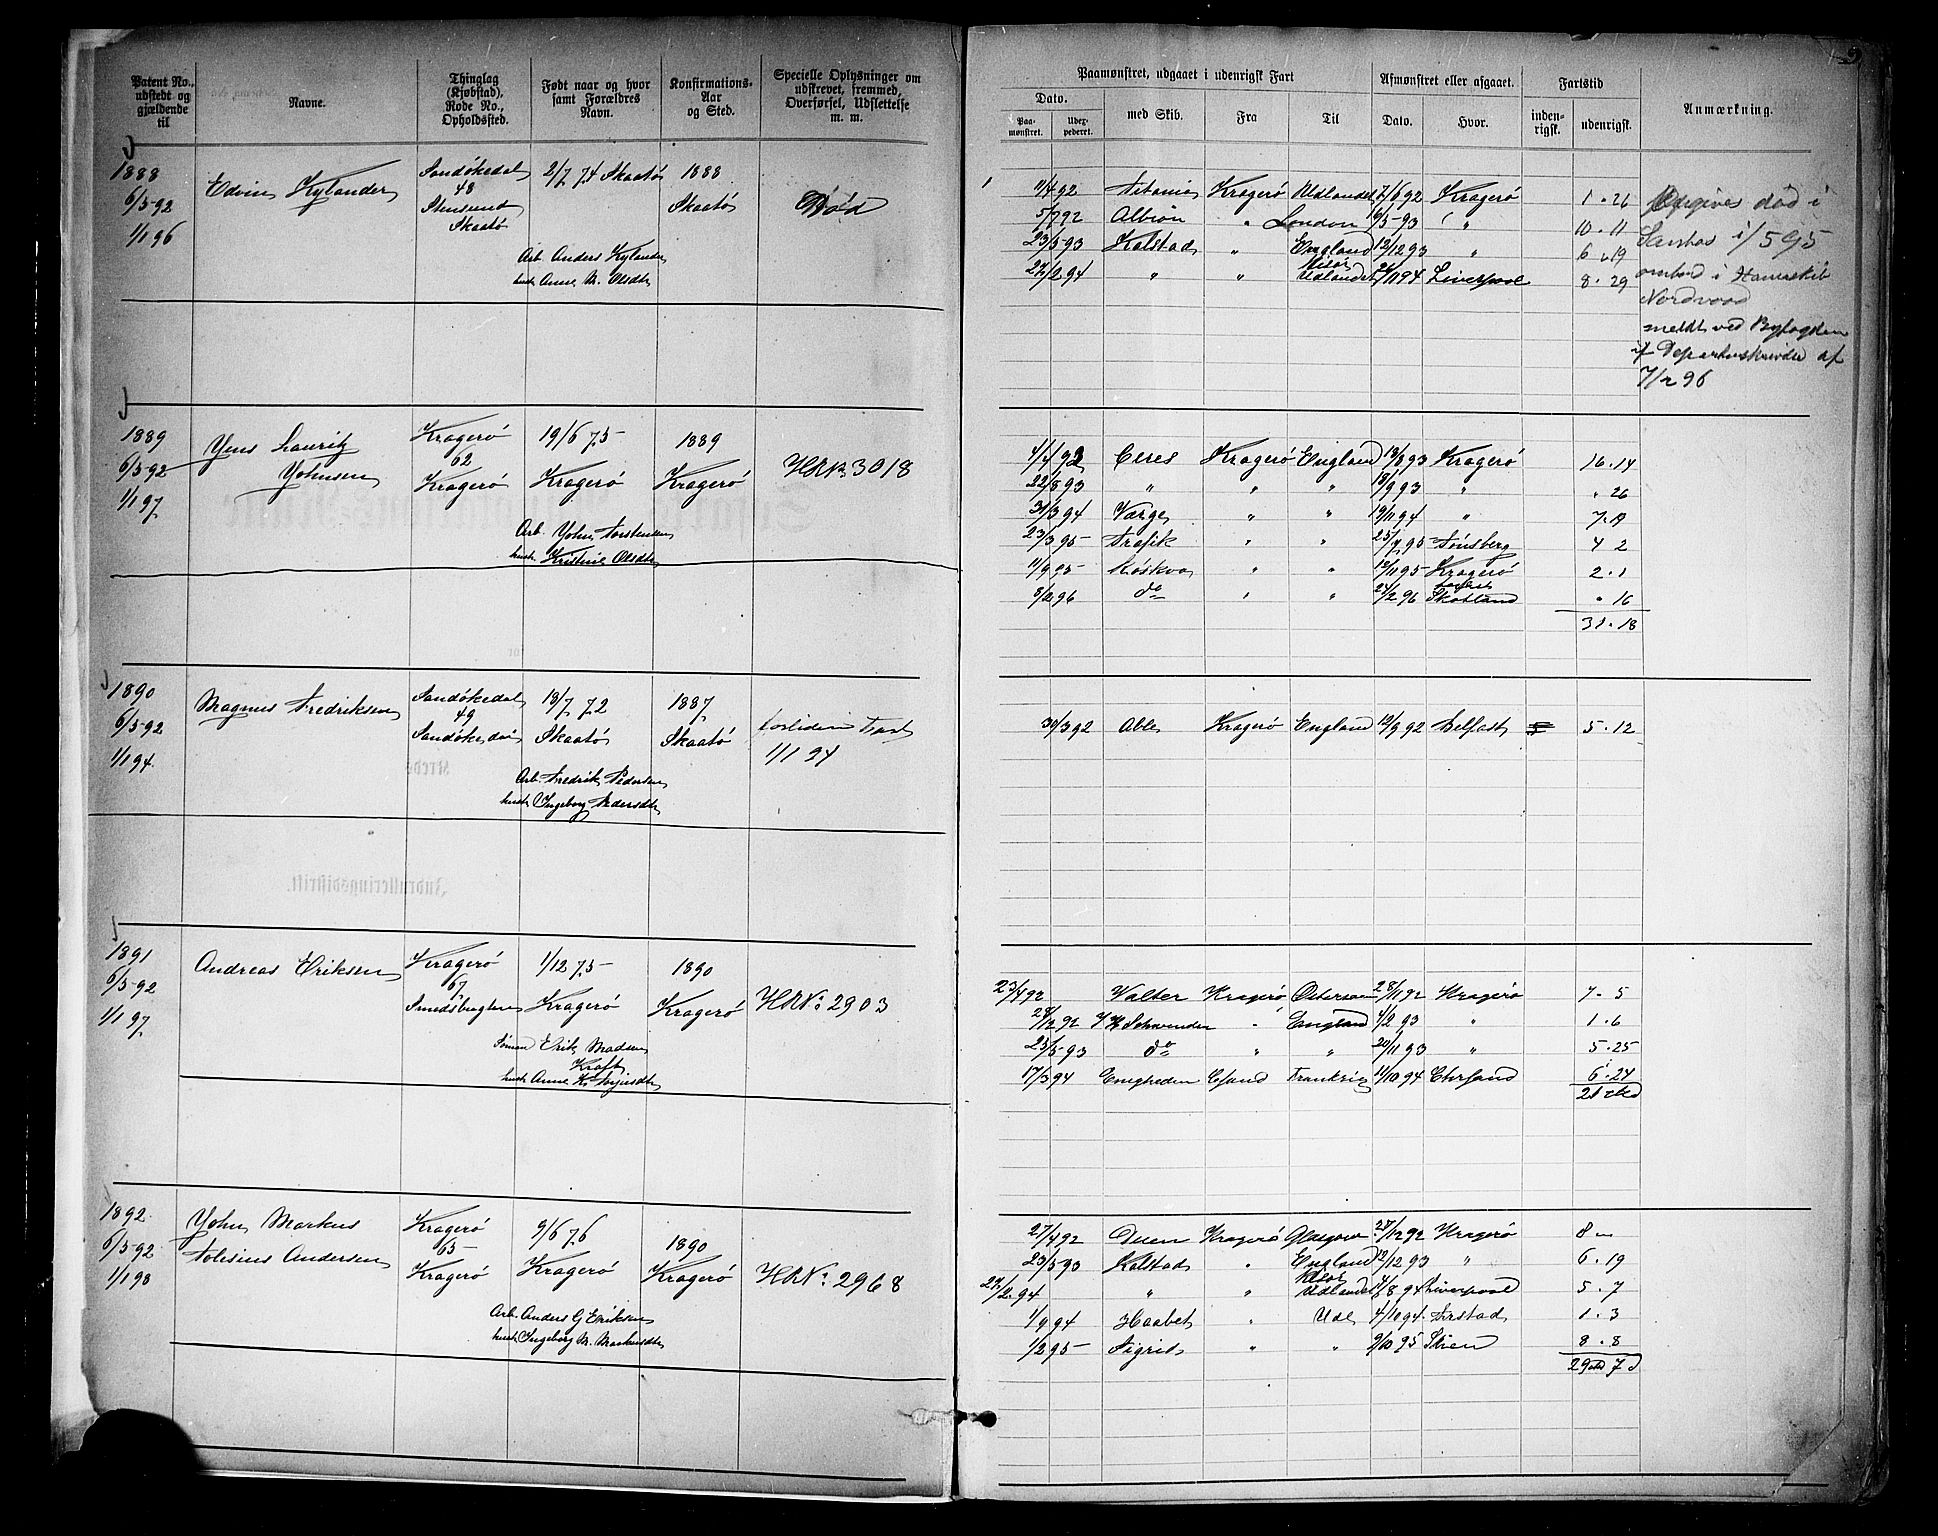 Patent No., udstedt og gjældende til
Navne.
Thinglag (Kjøbstad), Rode No., Opholdssted.
Født naar og hvor samt Forældres Navn.
Konfirmations-Aar og Sted.
Specielle Oplysninger om udskrevet, fremmed, Overførsel, Udslettelse m. m.
Paamønstret, udgaaet i udenrigsk Fart
Afmønstret eller afgaaet.
Fartstid
Anmærkning.
Dato.
Paa-mønstret.
Udex-pederet.
med Skib.
Fra
Til
Dato.
Hvor.
inden-rigsk.
udenrigsk.
1888
6/5-92
1/1 96
Edvin Kylander
Sandökedal
48
Stensund
Skaatö
2/7 74 Skaatö
Arb. Anders Kylander
hust. Anne M. Olsdtr
1888
Skaatö
Död
11/4 92 Titania Kragerö Udlandet 7/6 92 Kragerö 1 . 26
5/7 92 Albion " London 16/5-93 " 10 . 11
23/5-93 Kalstad " England 12/12 93 " 6 . 19
27/2 94 " " Udlandet 94 Liverpool 8 . 29
Opgives död i
i 1/5 95
ombord i
Nordvood
meldt ved Byfogden
af
7/2 96
1889
6/5-92
1/1 97
Yens Lauritz
Yohnsen
Kragerö
62
Kragerö
19/6 75
Kragerö
Arb. Yohn Torstensen
hust. Kristine Olsdtr
1889
Kragerö
HRNr 3018
4/4 92 Ceres Kragerö England 18/8 93 Kragerö 16 . 14
22/8 93 " " " 18/9 93 " " 26
31/3 94 Varge " " 19/11 94 " 7. 19
23/3 95- Trafik " " 25/7 95 Tönsberg 4 2
11/9 95- Moskva " " 12/11 95- Kragerö 2 . 1
8/2 96 do " " 24/2 96 Skotland " 16
31 . 18
1890
6/5-92
1/1 94
Magnus Fredriksen
Sandökedal
49
Sandökedal
18/7 72
Skaatö
Arb. Fredrik Pedersen
hust. Ingeborg Pedersdtr
1887
Skaatö
forliden Fart
1/1 94
30/3 92 Able Kragerö England 12/9 92 Belfast 5 . 12
1891
6/5-92
1/1 97
Andreas Eriksen
Kragerö
67
Smedsbugten
1/12 75-
Kragerö
Sömand Erik Madsen
Kraft
hust. Anne K. Terjesdtr
1890
Kragerö
HRNr: 2903
23/4 92 Walter Kragerö Östersöen 28/11 92 Kragerö 7 . 5
28/12 92 J H Schwenden " England 4/2 93 " 1 . 6
25/5-93 do " " 20/11 93 " 5 . 25
17/3 94 Enigheden Csand Frankrig 11/10 94 Chrsand 6 . 24
1892
6/5-92
1/1 98
Yohn Markus
Tolesius Andersen
Kragerö
65-
Kragerö
9/6 76
Kragerö
Arb. Anders G Eriksen
hust. Ingeborg M. Markusdtr
1890
Kragerö
HRNr: 2968
27/4 92 Duen Kragerö Glasgow 27/12 92 Kragerö 8 "
23/5-93 Kalstad " England 12/12 93 " 6 . 19
27/2 94 " " Udlandet 4/8 94 Liverpool 5 . 7
1/9 94 Haabet " Udl 4/10 94 Tvistad 1 . 3
1/2 95- Sigrid " " 9/10 95 Skien 8 . 8
29 md 7 d